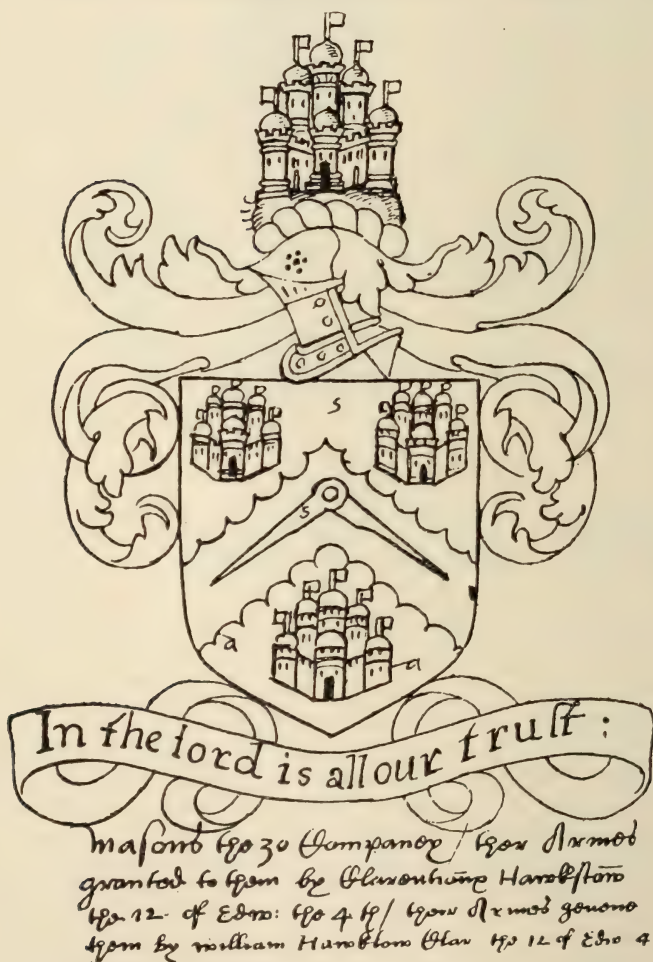 s
s
a
a
In the lord is all our trust :
Masons the 30 Companey / ther Armes
granted to them by Clarentiaux Hawkstow
the 12 of Edw: the 4 th / their Armes geuene
them by william Hawkslow Clar the 12 of Edw 4